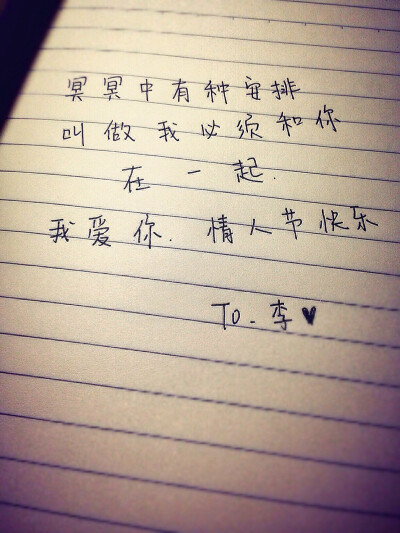 冥冥中有种安排
叫做我必须和你
在一起.
我爱你. 情人节快乐
To. 李♥